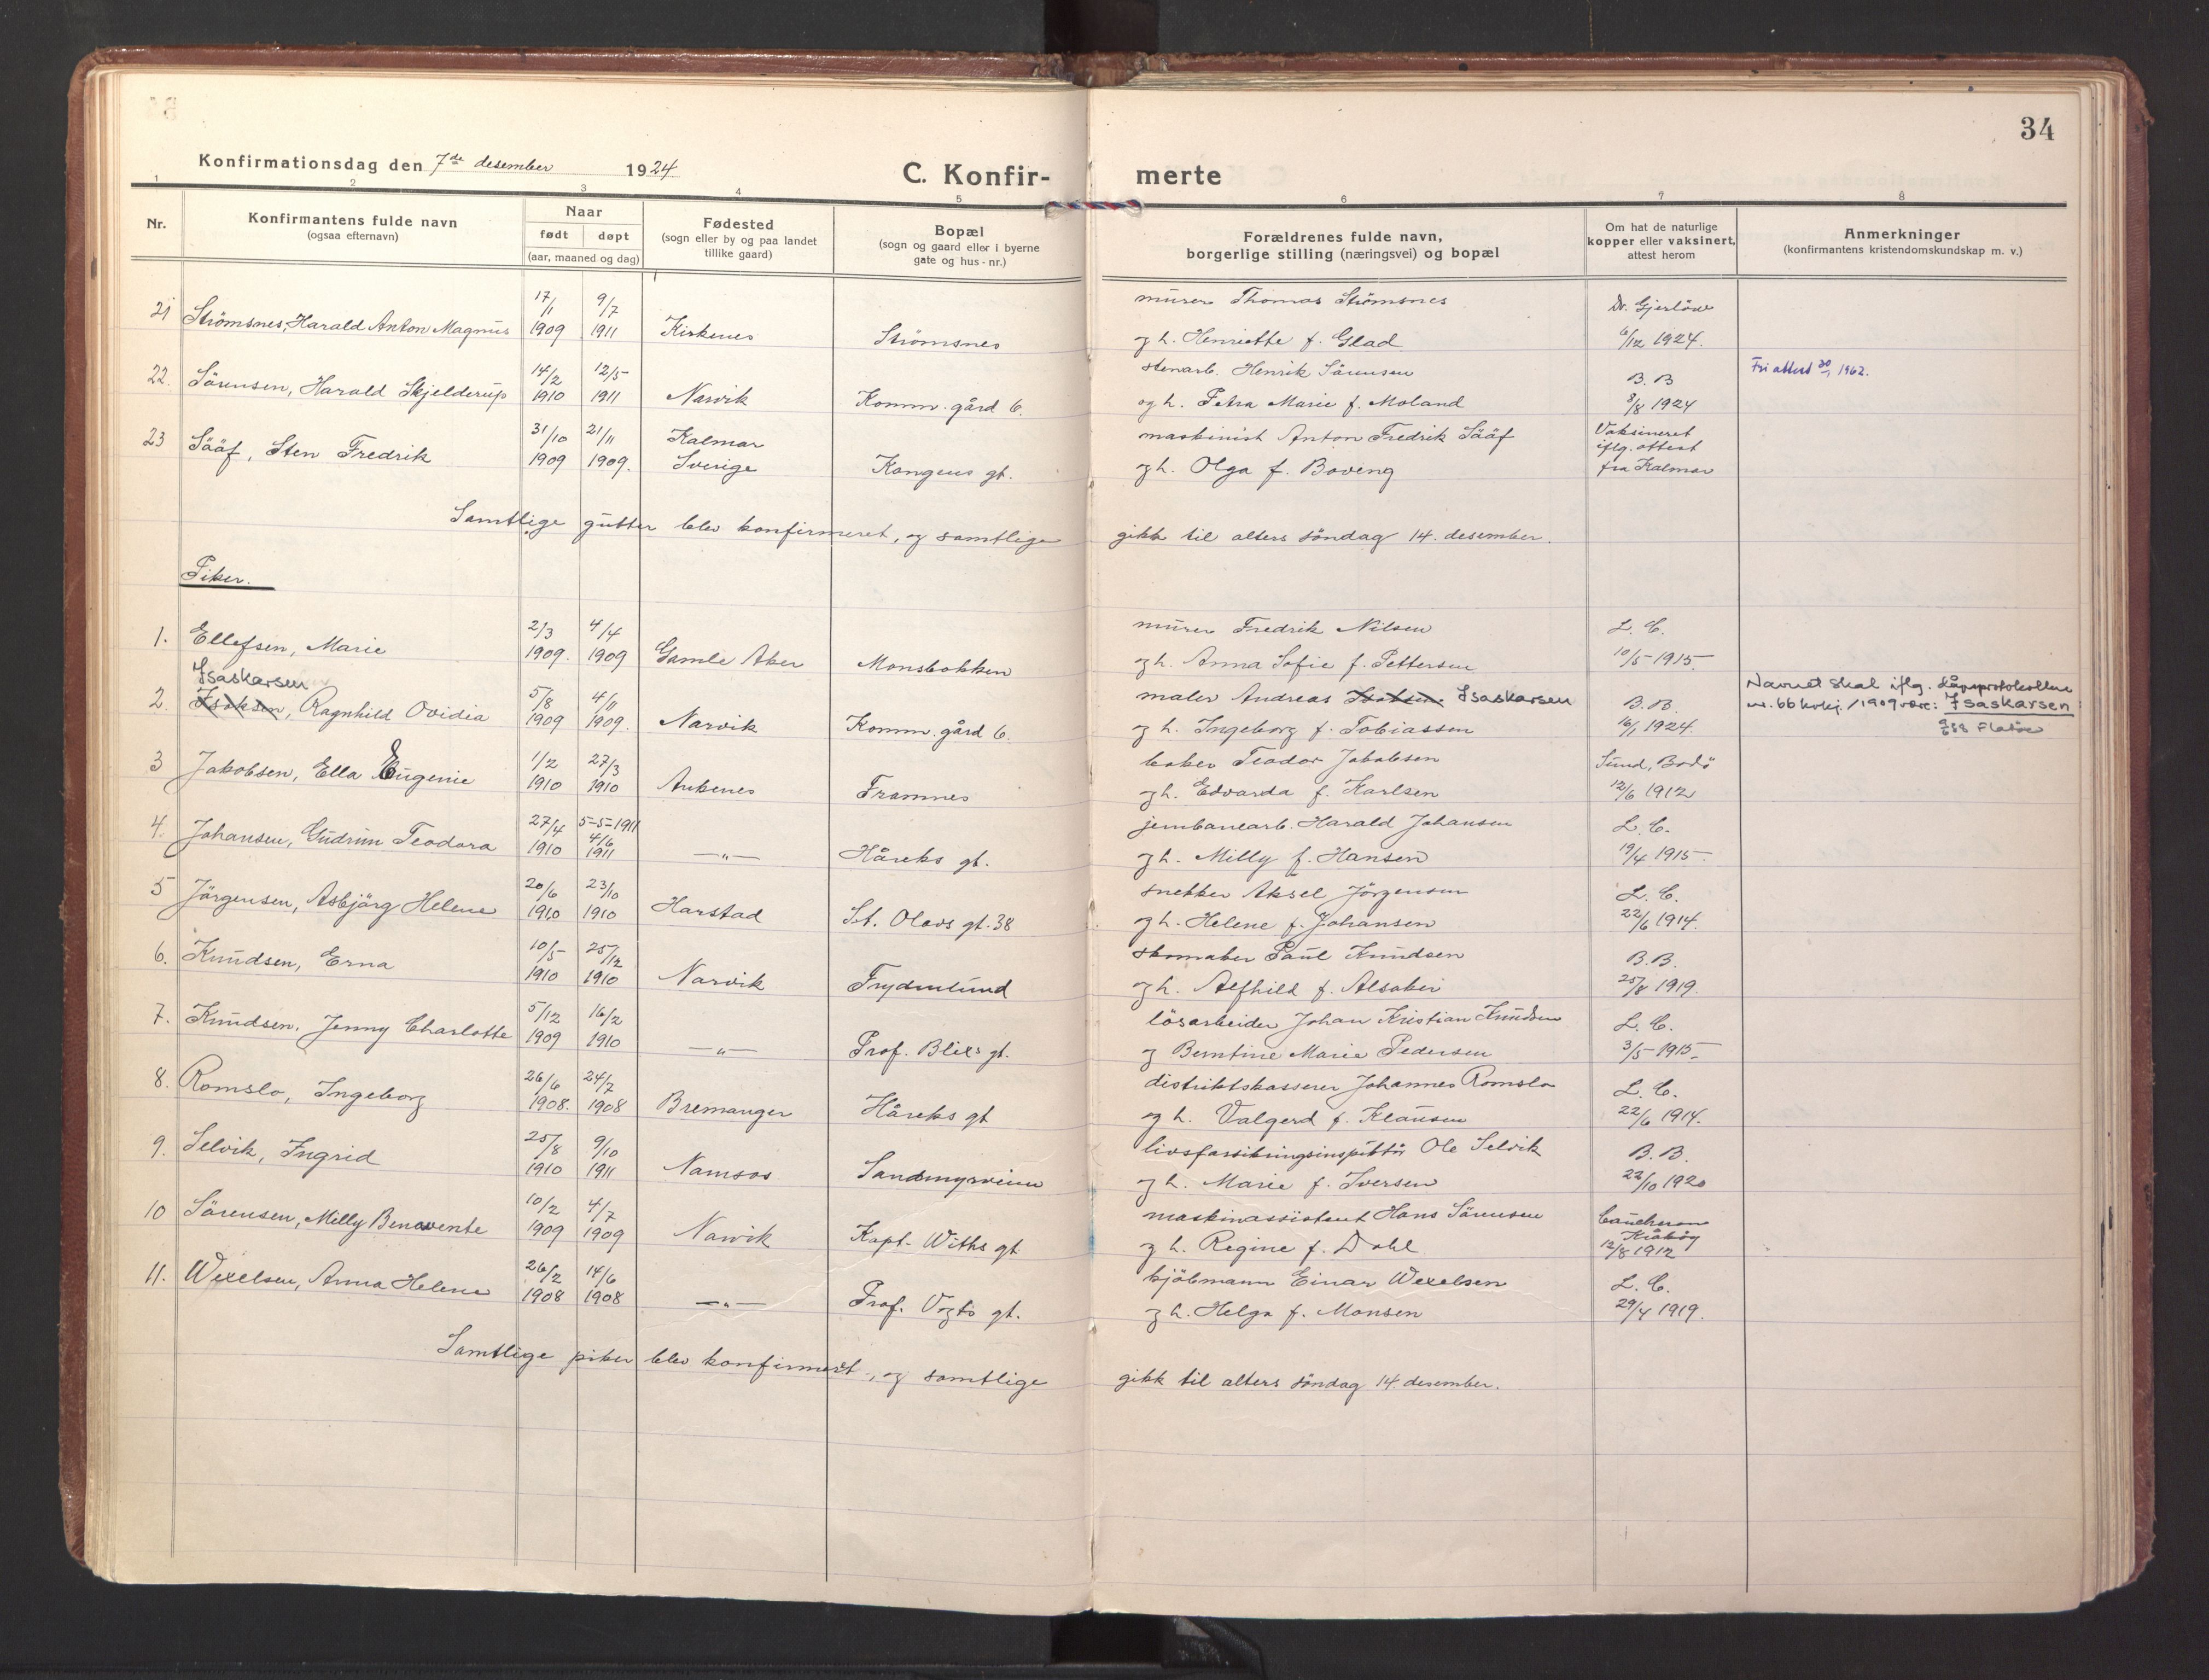 34
Konfirmationsdag den 7de desember 1924
C. Konfir-
merte
1 2 3 4 5 6 7 8
Nr.
Konfirmantens fulde navn
(ogsaa efternavn)
Naar
født døpt
(aar, maaned og dag)
Fødested
(sogn eller by og paa landet
tillike gaard)
Bopæl
(sogn og gaard eller i byerne
gate og hus-nr.)
Forældrenes fulde navn,
borgerlige stilling (næringsvei) og bopæl
Om hat de naturlige
kopper eller vaksinert,
attest herom
Anmerkninger
(konfirmantens kristendomskundskap m. v.)
17/1 9/7 murer Thomas Strömsnes Dr. Gjerlöw
21 Strömsnes, Harald Anton Magnus 1909 1911 Kirkenes Strömsnes og h. Henriette f. Glad 6/12 1924.
14/2 12/5 stenarb. Henrik Sörensen B. B Fri attest 1962.
22. Sörensen, Harald Skjelderup 1910 1911 Narvik Komm. gård 6. og h. Petra Marie f. Moland 8/8 1924
31/10 21/11 Kalmar maskinist Anton Fredrik Sääf Vaksineret
23 Sääf, Sten Fredrik 1909 1909. Sverige Kongens gt. og h. Olga f. Boveng iflg. attest
fra Kalmar
Samtlige gutter blev konfirmeret, og samtlige gikk til alters söndag 14. desember.
Piker.
2/3 4/4 murer Fredrik Nilsen L. C.
1. Ellefsen, Marie 1909. 1909 Gamle Aker Monsbakken og h. Anna Sofie f. Pettersen 10/5 1915.
Isaskarsen 5/8 4/11 maler Andreas Isaksen Isaskarsen B. B. Navnet skal iflg. dåpsprotokollen
2. Isaksen, Ragnhild Ovidia 1909 1909. Narvik Komm. gård 6. og h. Ingeborg f. Tobiassen 16/1 1924. nr. 66 være: Isaskarsen
1/2 27/3 baker Teodor Jakobsen Sund, Bodö
3 Jakobsen, Ella Eugenie 1910 1910 Ankenes Framnes og h. Edvarda f. Karlsen 12/6 1912
27/4 5-5-1911 jernbanearb. Harald Johansen L. C.
4. Johansen, Gudrun Teodora 1910 4/6 1911 —"— Håreks gt. og h. Milly f. Hansen 19/4 1915.
20/6 23/10 snekker Aksel Jörgensen L. C.
5 Jörgensen, Asbjörg Helene 1910 1910 Harstad St. Olavs gt. 38 og h. Helene f. Johansen 22/6 1914.
10/5 25/12 skomaker Paul Knudsen B. B.
6. Knudsen, Erna 1910 1910 Narvik Frydenlund og h. Alfhild f. Alsaker 25/8 1919.
5/12 16/2 lösarbeider Johan Kristian Knudsen L. C.
7. Knudsen, Jenny Charlotte 1909 1910 —"— Prof. Blixs gt. og Berntine Marie Pedersen 3/5 1915.
26/6 24/7 distriktskasserer Johannes Romslo L. C.
8. Romslo, Ingeborg 1908. 1908 Bremanger Håreks gt og h. Valgerd f. Klausen 22/6 1914.
25/8 9/10 livsforsikringsinspektör Ole Selvik B. B.
9. Selvik, Ingrid 1910 1911 Namsos Sandmyrveien og h. Marie f. Iversen 22/10 1920
10/2 4/7 maskinassistent Hans Sörensen
10 Sörensen, Melly Benavente 1909 1909 Narvik Kapt. Withs gt og h. Regine f. Dahl 12/8 1912
26/2 14/6 kjöbmann Einar Wexelsen L. C.
11. Wexelsen, Anna Helene 1908 1908 —"— Prof. Vogts gt. og h. Helga f. Monsen 29/4 1919.
Samtlige piker blev konfirmert, og samtlige gikk til alters söndag 14 desember.